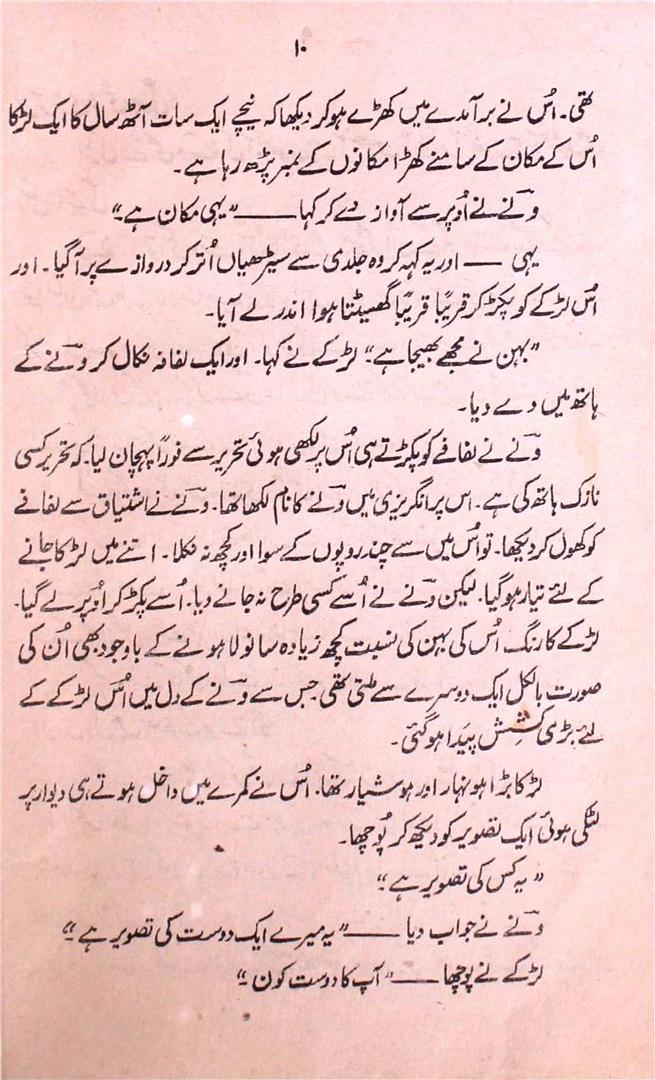 ۱۰
تھی۔ اُس نے برآمدے میں کھڑے ہوکر دیکھا کہ نیچے ایک سات آٹھ سال کا ایک لڑکا
اُس کے مکان کے سامنے کھڑا مکانوں کے نمبر پڑھ رہا ہے۔
ونے نے اُوپر سے آواز دے کر کہا ــــــ "یہی مکان ہے"
یہی ــــــ اور یہ کہہ کر وہ جلدی سے سیڑھیاں اُتر کر دروازے پر آگیا۔ اور
اُس لڑکے کو پکڑ کر قریبًا قریبًا گھسیٹتا ہوا اندر لے آیا۔
"بہن نے مجھے بھیجا ہے" لڑکے نے کہا۔ اور ایک لفافہ نکال کر ونے کے
ہاتھ میں دے دیا۔
ونے نے لفافے کو پکڑتے ہی اُس پر لکھی ہوئی تحریر سے فوراً پہچان لیا۔ کہ تحریر کسی
نازک ہاتھ کی ہے۔ اس پر انگریزی میں ونے کا نام لکھا تھا۔ ونے نے اشتیاق سے لفافے
کو کھول کر دیکھا۔ تو اُس میں سے چند روپوں کے سوا اور کچھ نہ نکلا۔ اتنے میں لڑکا جانے
کے لئے تیار ہوگیا۔ لیکن ونے نے اُسے کسی طرح نہ جانے دیا۔ اُسے پکڑ کر اُوپر لے گیا۔
لڑکے کا رنگ اُس کی بہن کی نسبت کچھ زیادہ سانولا ہونے کے باوجود بھی اُن کی
صورت بالکل ایک دوسرے سے ملتی تھی جس سے ونے کے دل میں اُس لڑکے کے
لئے بڑی کشش پیدا ہوگئی۔
لڑکا بڑا ہونہار اور ہوشیار تھا۔ اُس نے کمرے میں داخل ہوتے ہی دیوار پر
لٹکی ہوئی ایک تصویر کو دیکھ کر پُوچھا۔
"یہ کس کی تصویر ہے"
ونے نے جواب دیا ــــــ "یہ میرے ایک دوست کی تصویر ہے"
لڑکے نے پوچھا ــــــ "آپ کا دوست کون"